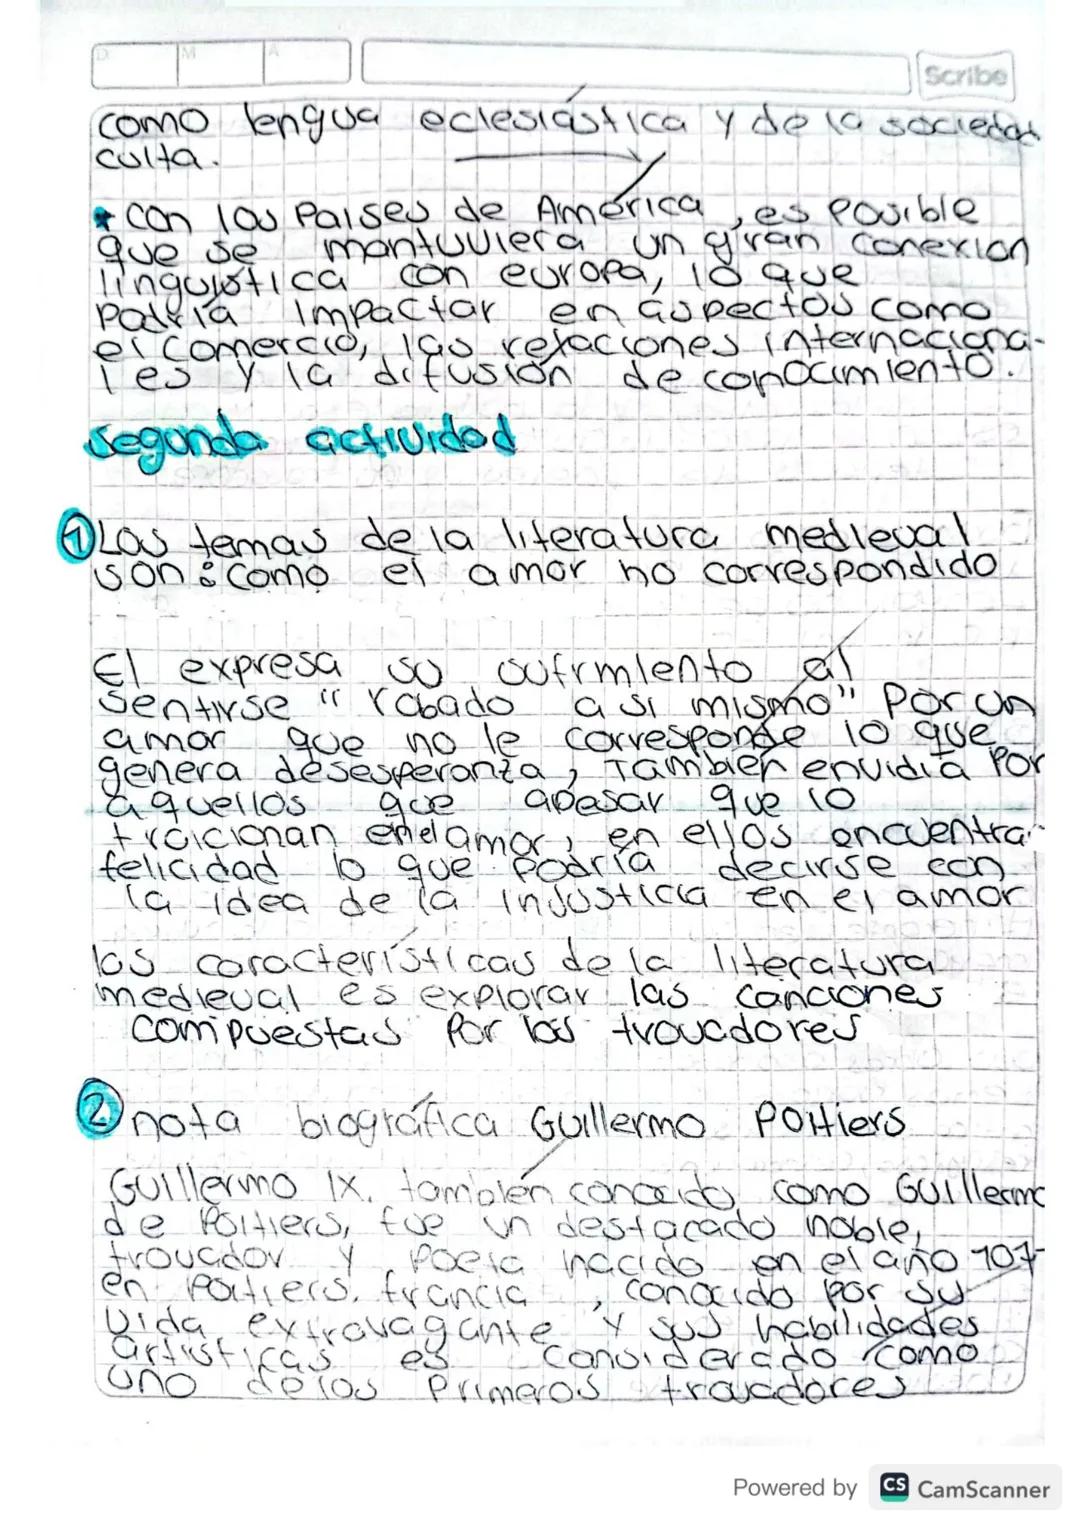 D M A
Scribe
como lengua eclesiástica y de la sociedad
culta.
* con los Paises de América, es posible
que se mantuviera un gran conexion
linguistica con europa, lo que
Podria impactar en aspectos como
el comercio, las relaciones internaciona-
les y la difusión de conocimiento.
segunda actividad
1 Los temas de la literatura medieval
son: como el amor no correspondido
El expresa su sufrmiento al
sentirse "robado a si mismo" Por un
amor que no le corresponde lo que
genera desesperanza, También envidia Por
aquellos que apesar que lo
traicionan en el amor, en ellos encuentra
felicidad lo que podría decirse con
la idea de la injusticia en el amor
las características de la literatura
medieval es explorar las canciones
compuestas Por los trovadores
2 nota biográfica Guillermo Poitiers
Guillermo IX. también conocido como Guillermo
de Poitiers, fue un destacado noble,
trovador y Poeta nacido en el año 107
en Poitiers, francia, conocido por su
vida extravagante y sus habilidades
artisticas es considerado como
uno de los Primeros trovadores
Powered by CS CamScanner